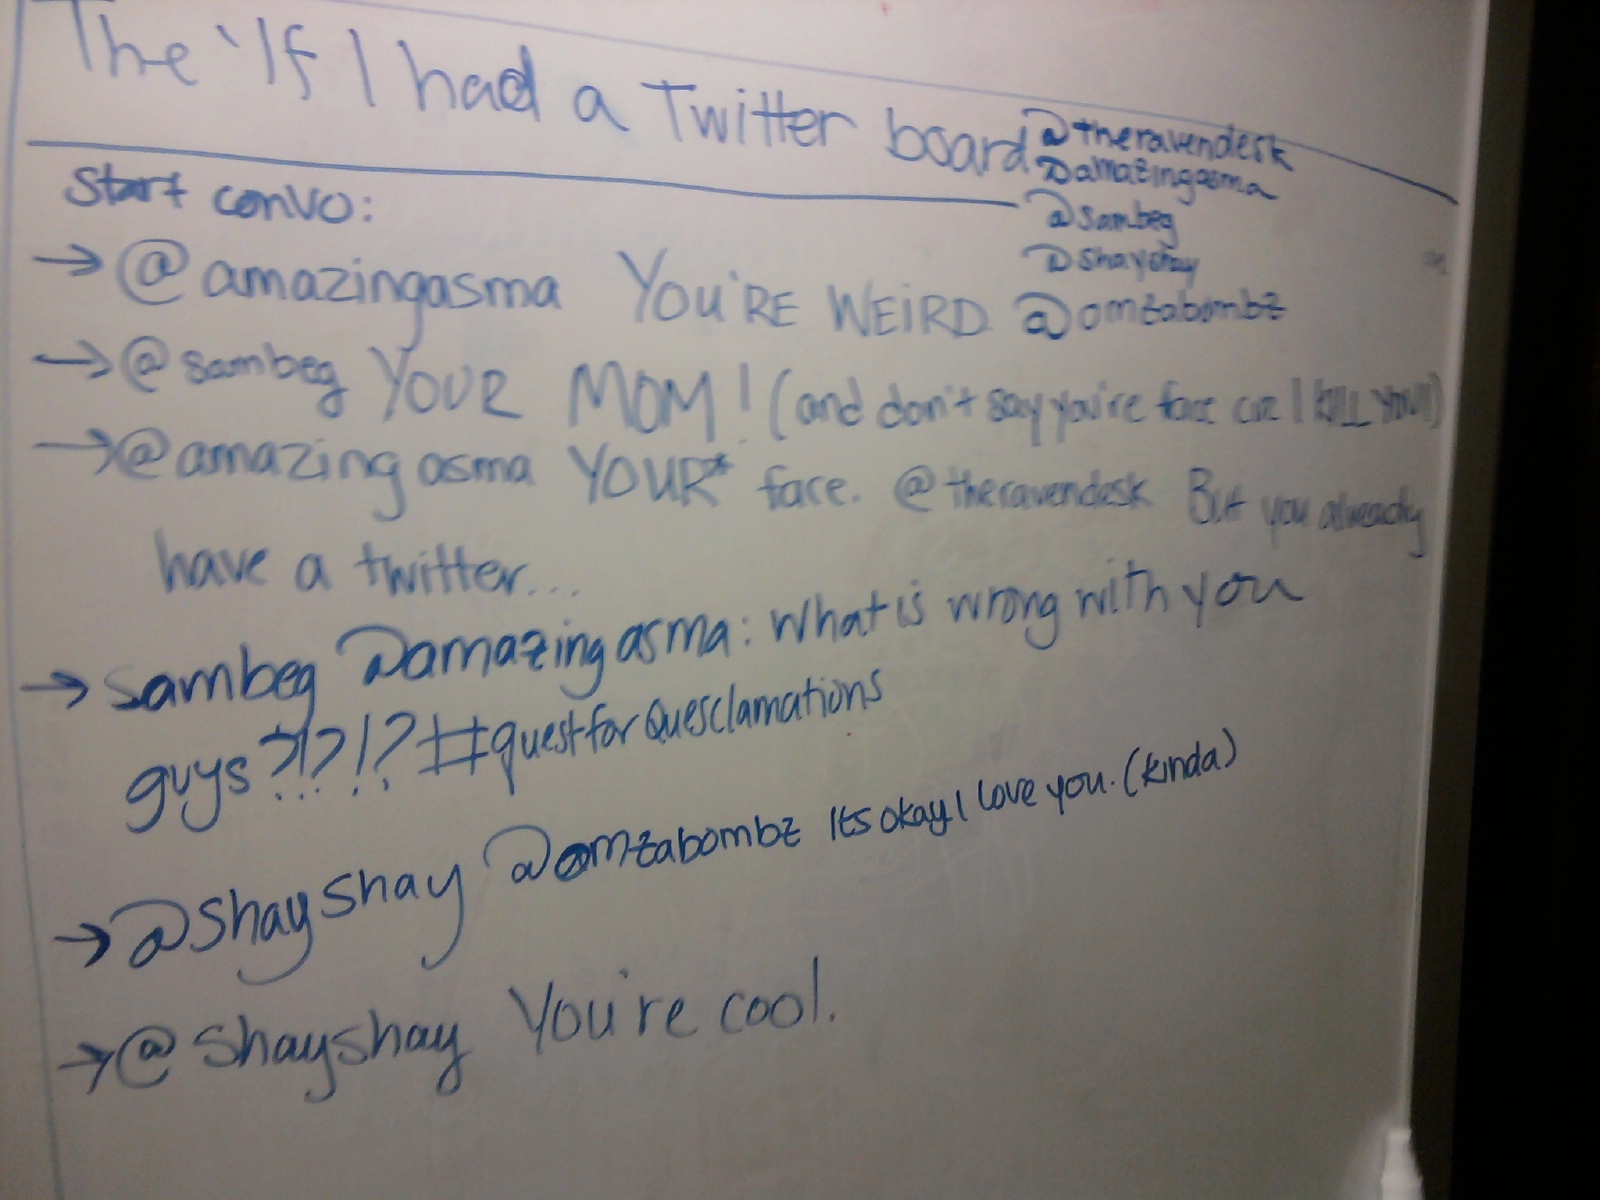 The 'If I had a Twitter board
@theravendesk
@amazingasma
@sambeg
@shayshay
@omzabombz
Start convo:
→ @amazingasma YOU'RE WEiRD
→ @sambeg YOUR MOM! (and don't say you're face cuz I KILL YOU!)
→ @amazingasma YOUR* face. @theravendesk But you already
have a twitter...
→ sambeg @amazingasma: What is wrong with you
guys?!?!? #questforQuesclamations
→ @shayshay @omzabombz Its okay I love you. (kinda)
→ @shayshay You're cool.